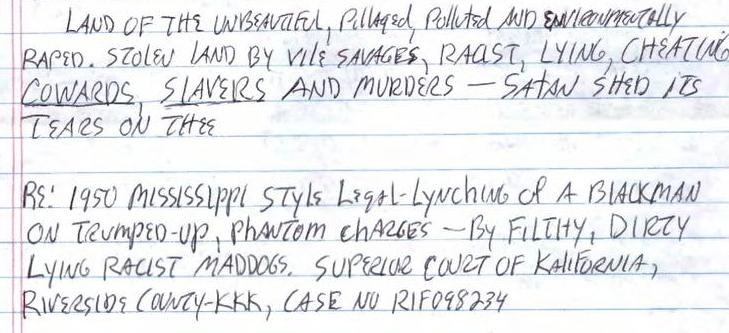 LAND OF THE UNBEAUTIFUL, Pillaged, Polluted AND ENVIRONMENTALLY
RAPED. STOLEN LAND BY VILE SAVAGES, RACIST, LYING, CHEATING
COWARDS, SLAVERS AND MURDERS — SATAN SHED ITS
TEARS ON THEE
RE: 1950 MISSISSIPPI STYLE Legal-Lynching of A BLACKMAN
ON TRUMPED-UP, PHANTOM CHARGES — By FILTHY, DIRTY
LYING RACIST MADDOGS. SUPERIOR COURT OF KALIFORNIA,
RIVERSIDE COUNTY-KKK, CASE NO RIF098234